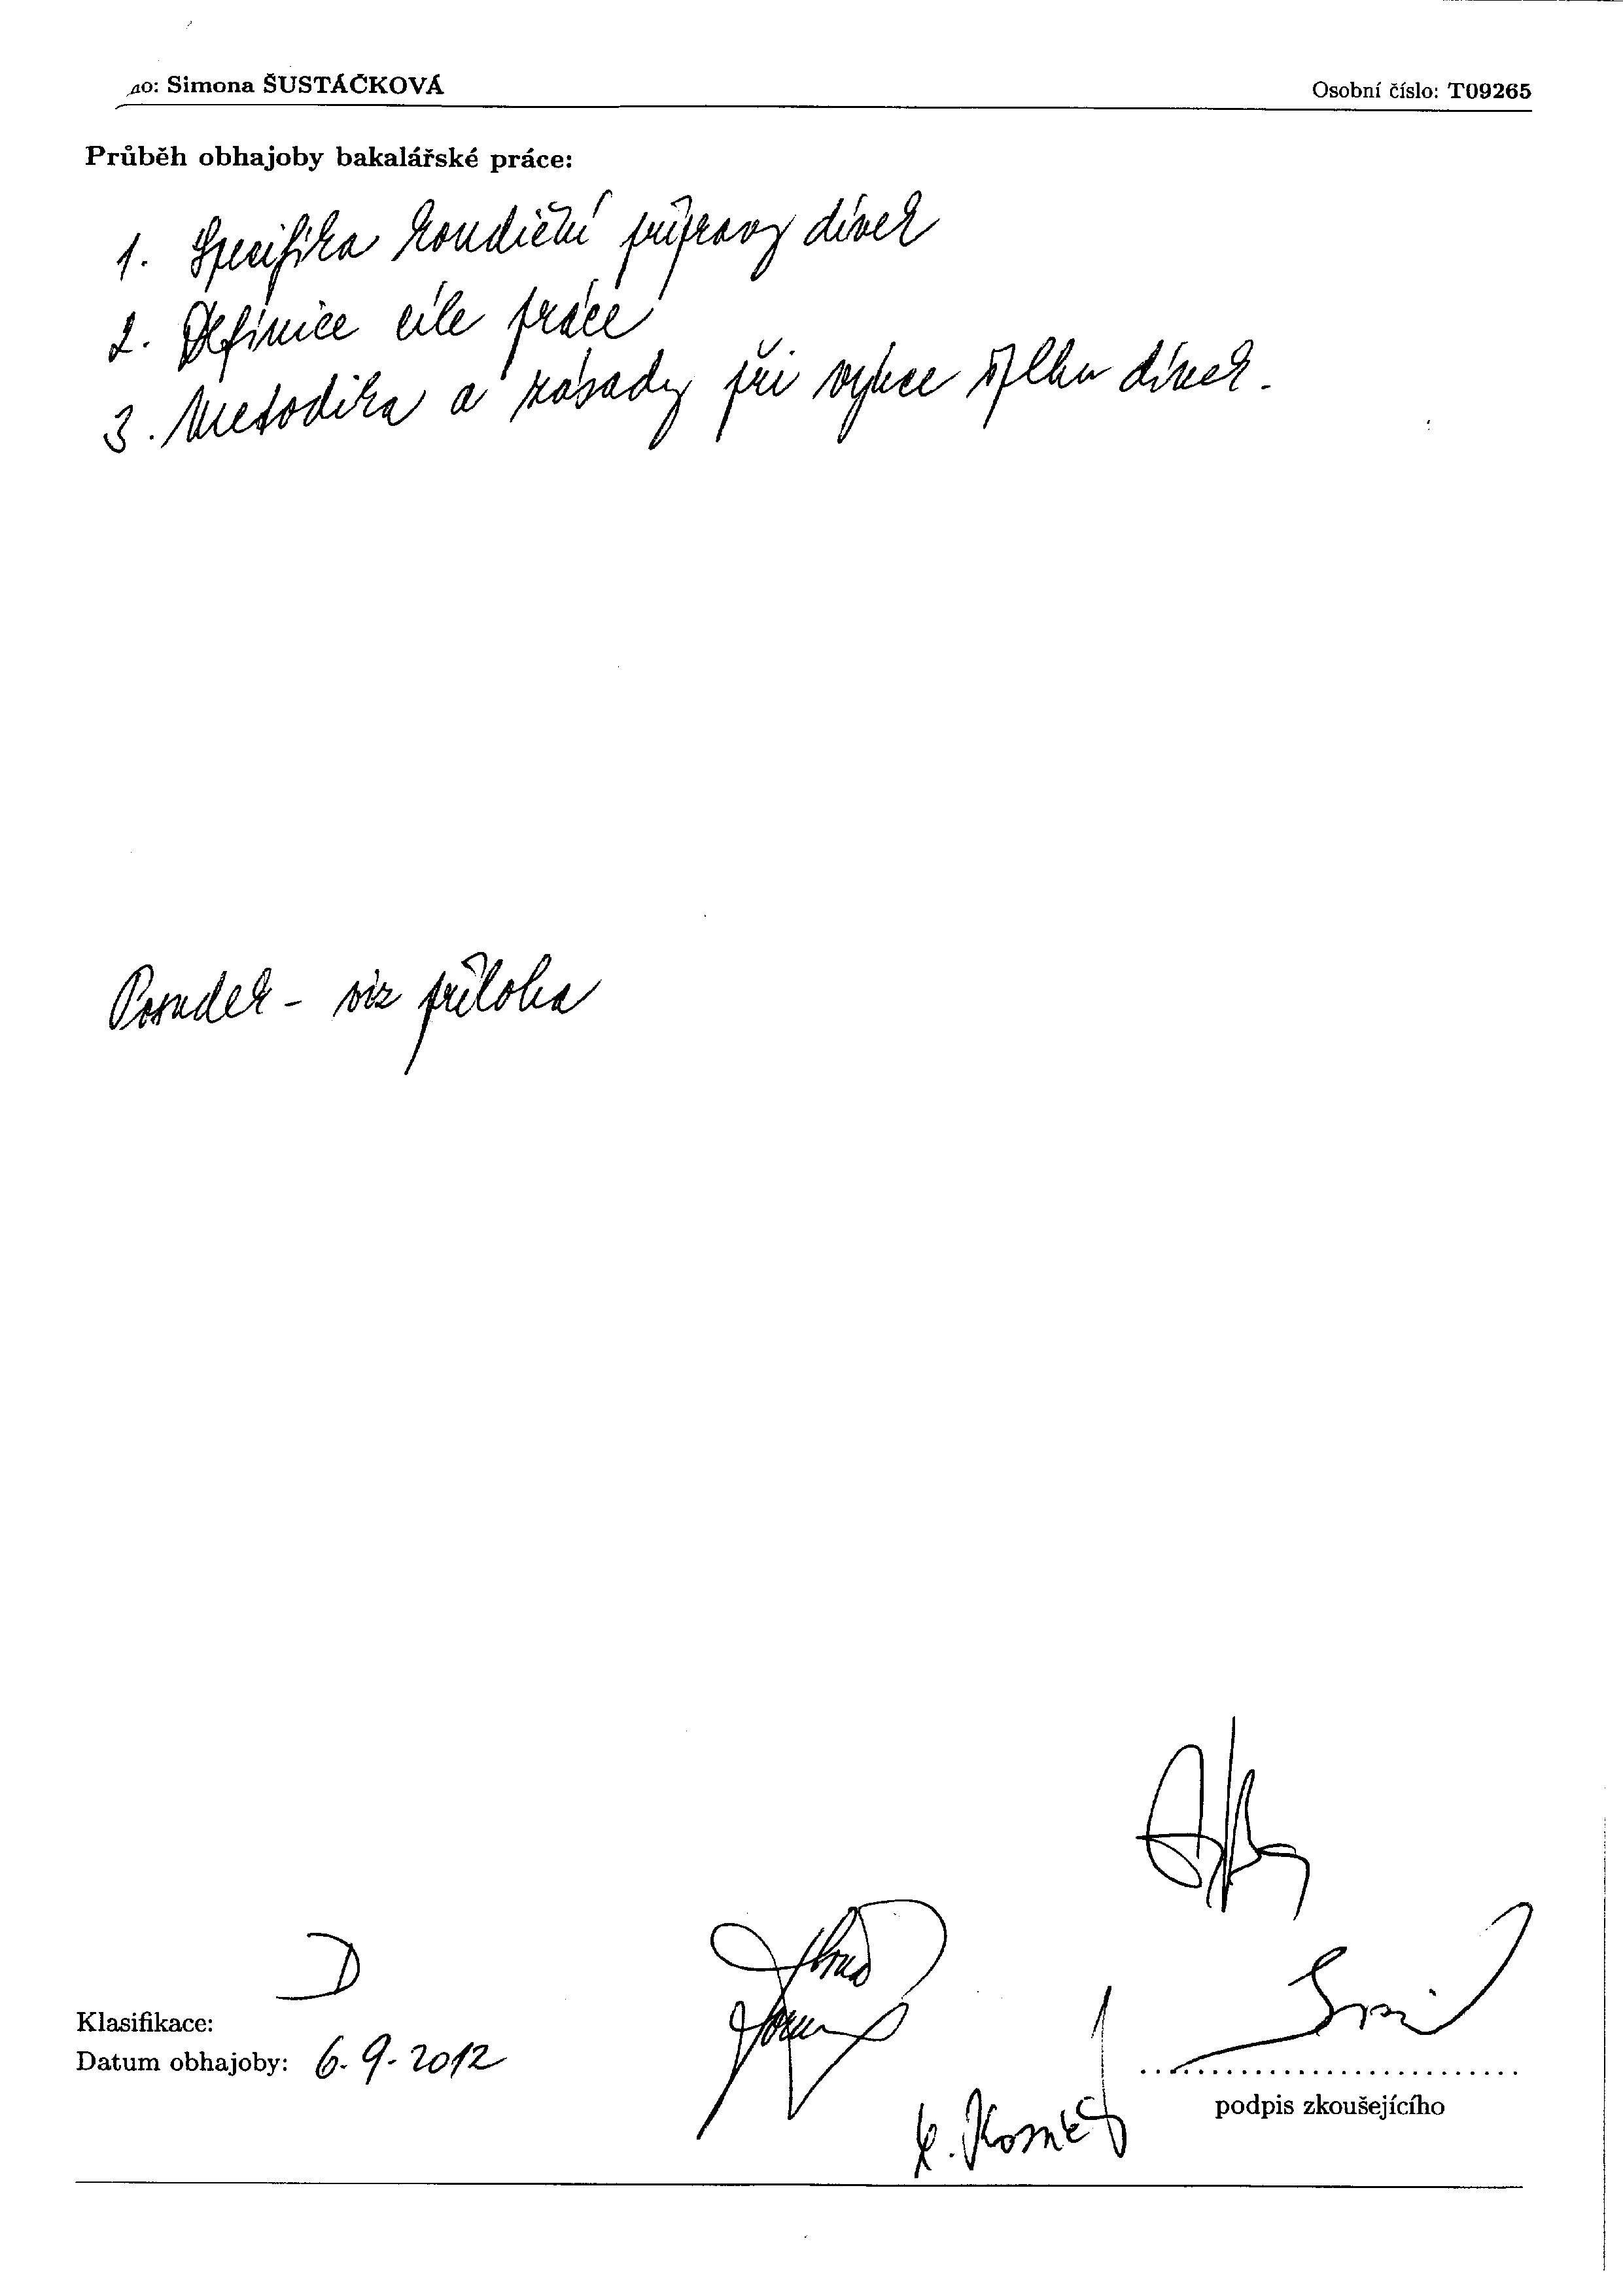 no: Simona ŠUSTÁČKOVÁ Osobní číslo: T09265
Průběh obhajoby bakalářské práce:
1. Specifika kondiční přípravy dívek
2. Definice cíle práce
3. Metodika a zásady při výuce dívek.
Posudek - viz příloha
D
Klasifikace:
Datum obhajoby: 6. 9. 2012
podpis zkoušejícího